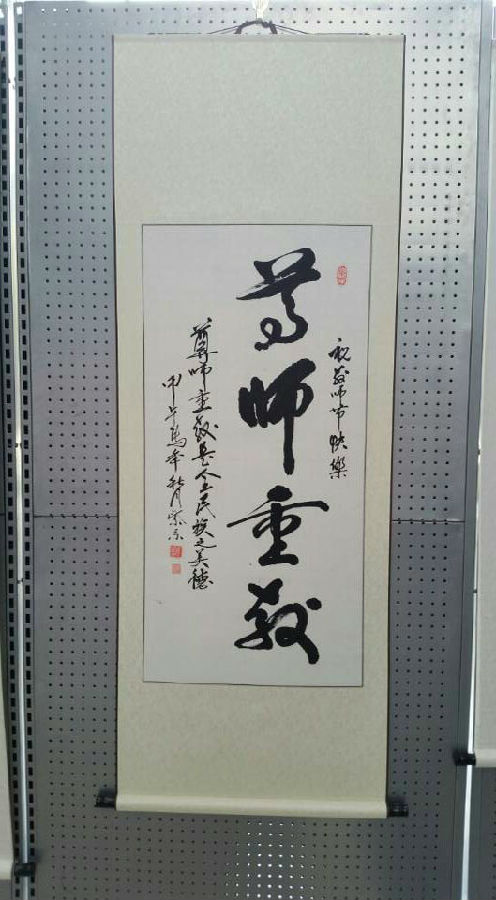 祝教师节快樂
尊师重教
尊师重教是人上民族之美德
甲午馬年秋月